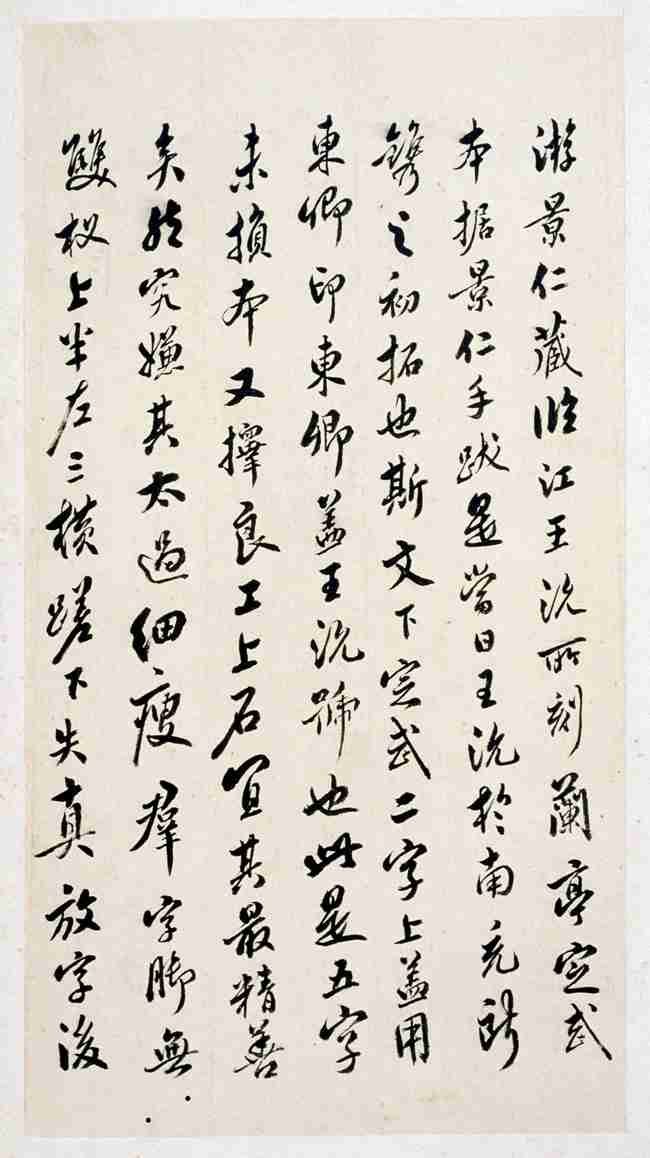 游景仁藏臨江王沇所刻蘭亭定武
本據景仁手跋是當日王沇於南充所
鐫之初拓也斯文下定武二字上蓋用
東卿印東卿蓋王沇號也此是五字
未損本又擇良工上石宜其最精善
矣然究嫌其太過細瘦羣字腳無
雙杈上半左三橫蹉下失真放字後